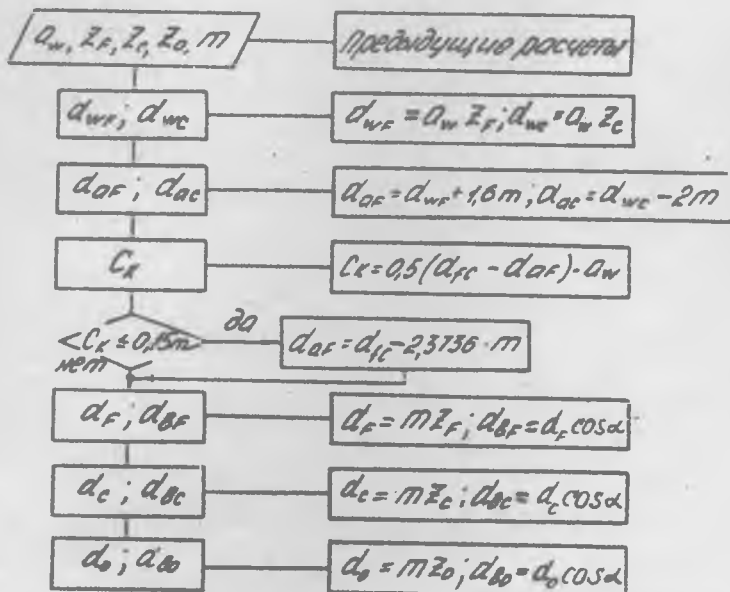 a_w, z_F, z_c, z_0, m
Предыдущие расчеты
d_wF; d_wc
d_wF = a_w z_F; d_wc = a_w z_c
d_aF; d_ac
d_aF = d_wF + 1,6m; d_ac = d_wc - 2m
C_K
C_K = 0,5(d_fc - d_aF) - a_w
< C_K ≤ 0,15m
да
нет
d_aF = d_fc - 2,3736 · m
d_F; d_вF
d_F = mz_F; d_вF = d_F cosα
d_c; d_вc
d_c = mz_c; d_вc = d_c cosα
d_0; d_в0
d_0 = mz_0; d_в0 = d_0 cosα